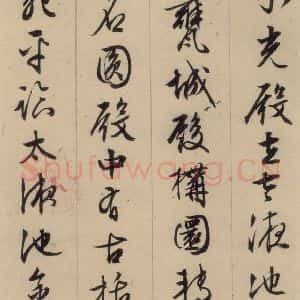 光殿在太液池
甓城殿構圜轉
名圓殿中有古栝
苑平臨太液池金
Shufawang.CN